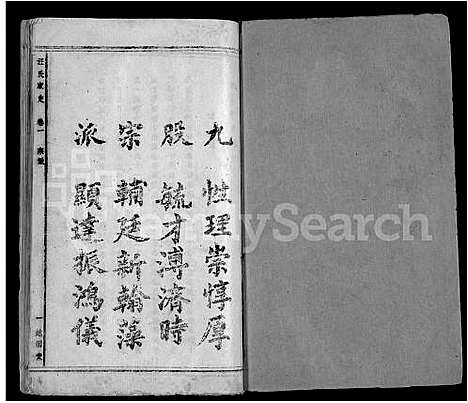 九 性理崇惇厚
股 毓才溥濟時
宗 輔廷新翰藻
派 顯達振鴻儀
汪氏家史 卷一
一
FamilySearch